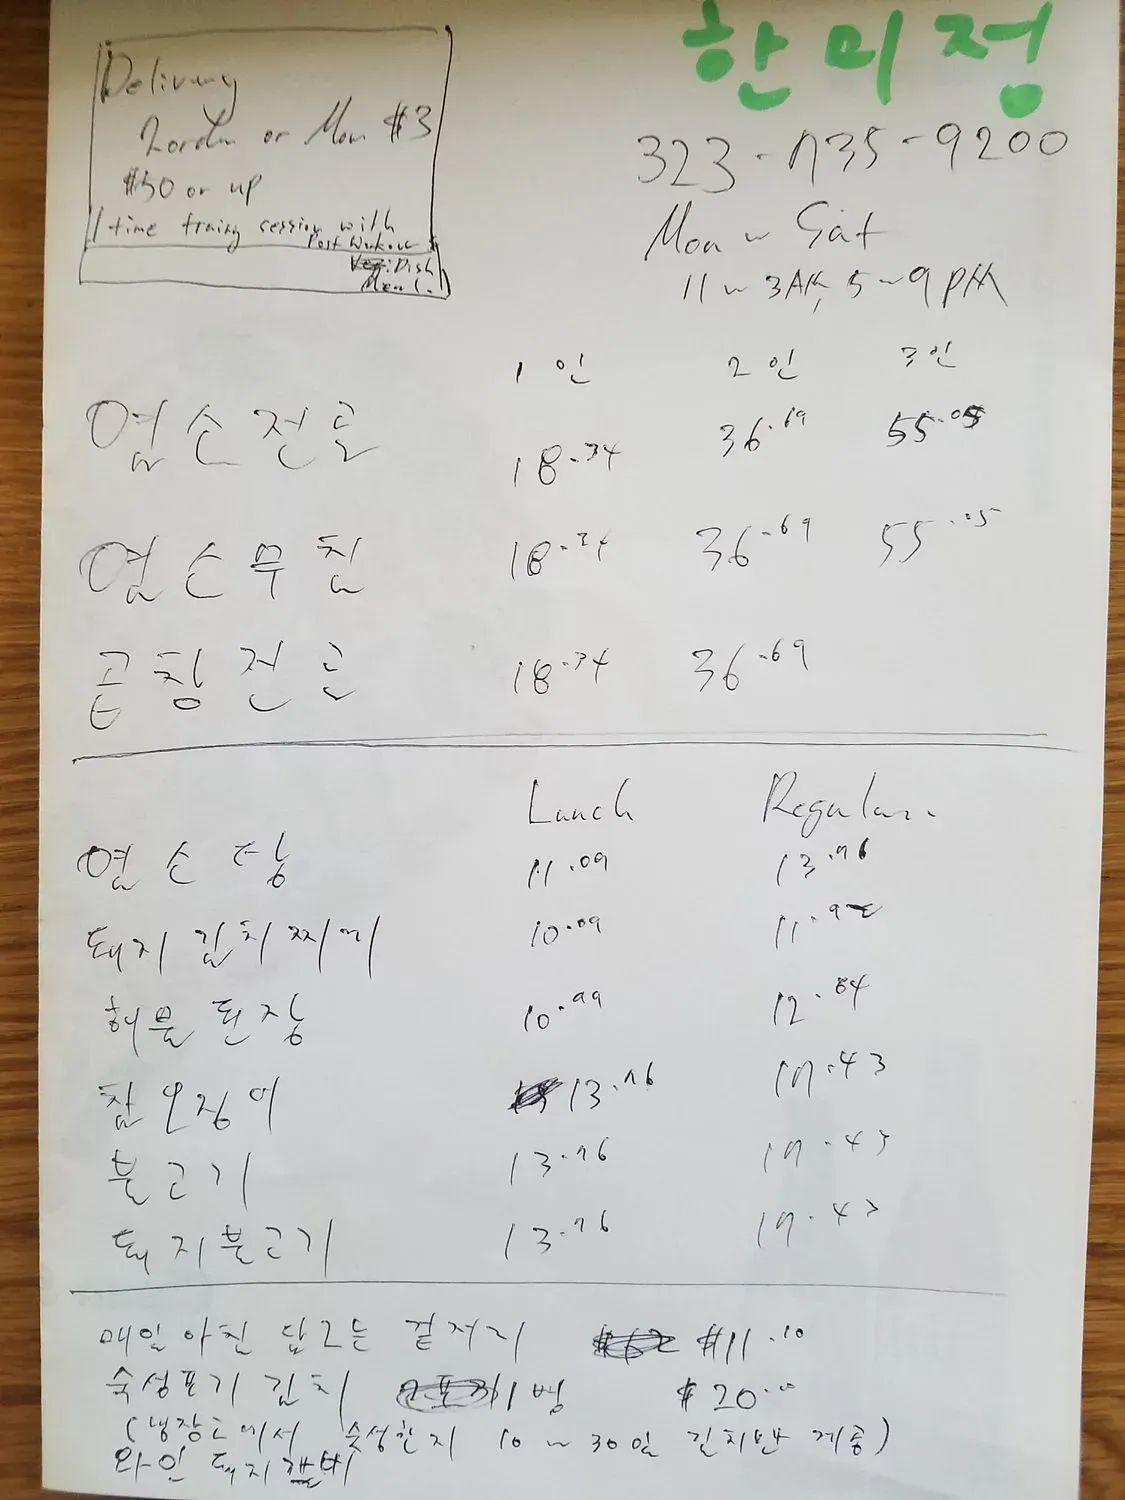 한미정
323-735-9200
Mon ~ Sat
11 ~ 3AM, 5 ~ 9 PM
Delivery
2 order or More $3
$50 or up
1 time traning session with
Post Workout
Dish
1인 2인 3인
염소전골 18.34 36.69 55.05
염소무침 18.34 36.69 55.05
곱창전골 18.34 36.69
Lunch Regular
염소탕 11.09 13.76
돼지김치찌개 10.09 11.92
해물된장 10.99 12.84
참오징어 13.76 17.43
불고기 13.76 17.43
돼지불고기 13.76 17.43
매일아친 담그는 겉저리 $11.10
숙성포기김치 1병 $20.00
(냉장고에서 숙성한지 10 ~ 30일 김치만 제공)
와인 돼지갈비